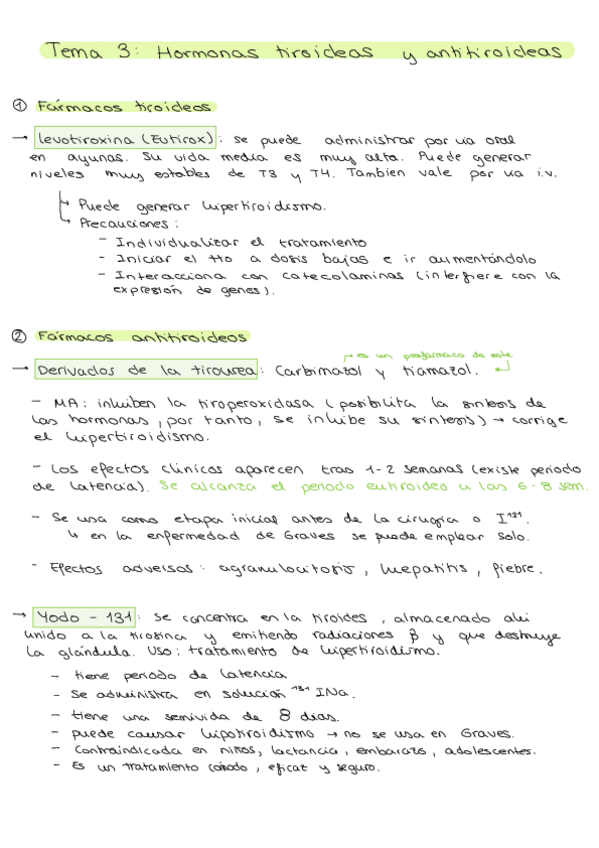 Tema 3: Hormonas tiroideas y antitiroideas
① Fármacos tiroideos
→ Levotiroxina (Eutirox): se puede administrar por via oral
en ayunas. Su vida media es muy alta. Puede generar
niveles muy estables de T3 y T4. Tambien vale por via i.v.
↳ Puede generar hipertiroidismo.
↳ Precauciones:
- Individualizar el tratamiento
- Iniciar el tto a dosis bajas e ir aumentándolo
- Interacciona con catecolaminas (interfiere con la
expresión de genes).
② Fármacos antitiroideos
es un profármaco de este
→ Derivados de la tiourea: Carbimazol y tiamazol.
- MA: inhiben la tiroperoxidasa (posibilita la síntesis de
las hormonas, por tanto, se inhibe su síntesis) → corrige
el hipertiroidismo.
- Los efectos clínicos aparecen tras 1-2 semanas (existe periodo
de latencia). Se alcanza el periodo eutiroideo a las 6-8 sem.
- Se usa como etapa inicial antes de la cirugía o I¹³¹.
↳ en la enfermedad de Graves se puede emplear solo.
- Efectos adversos: agranulocitosis, hepatitis, fiebre.
→ Yodo - 131: se concentra en la tiroides, almacenado ahí
unido a la tirosina y emitiendo radiaciones β y que destruye
la glándula. Uso: tratamiento de hipertiroidismo.
- tiene periodo de latencia
- Se administra en solución ¹³¹INa.
- tiene una semivida de 8 dias.
- puede causar hipotiroidismo → no se usa en Graves.
- Contraindicada en niños, lactancia, embarazo, adolescentes.
- Es un tratamiento cómodo, eficaz y seguro.